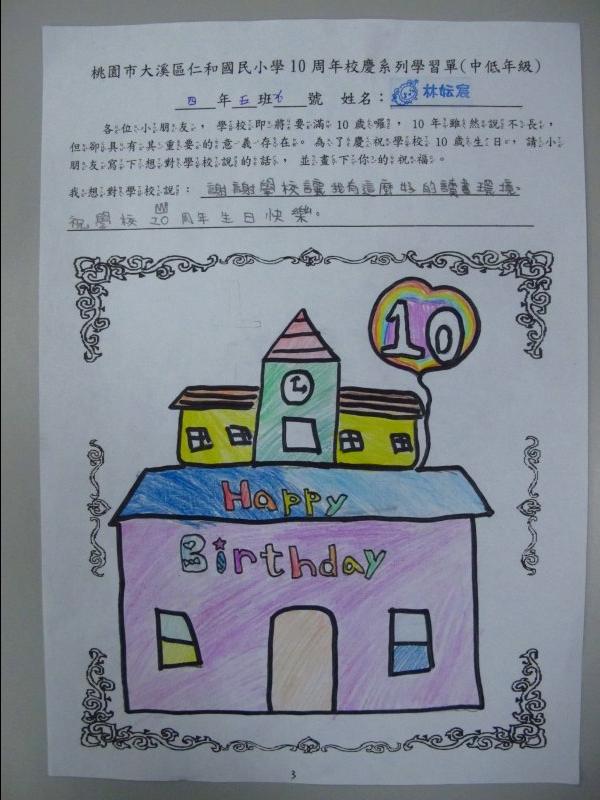 桃園市大溪區仁和國民小學10周年校慶系列學習單(中低年級)
四年五班 號 姓名：林妘宸
各位小朋友，學校即將要滿10歲囉，10年雖然說不長，
但卻具有其重要的意義存在。為了慶祝學校10歲生日，請小
朋友寫下想對學校說的話，並畫下你的祝福。
我想對學校說：謝謝學校讓我有這麼好的讀書環境。
祝學校10周年生日快樂。
10
Happy
Birthday
3